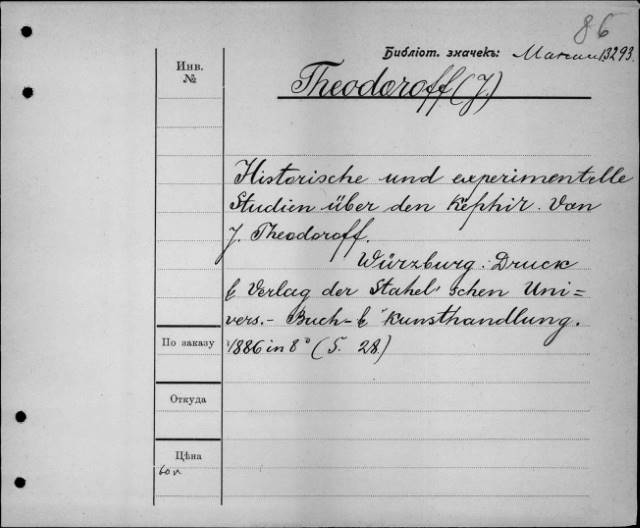 86
Библіот. значекъ: 13293.
Инв.
№
Theodoroff (J.)
Historische und experimentelle
Studien über den Kephir. Von
J. Theodoroff.
Würzburg. Druck
& Verlag der Stahel'schen Uni=
vers.- Buch- & Kunsthandlung.
По заказу
1886 in 8° (S. 28.)
Откуда
Цѣна